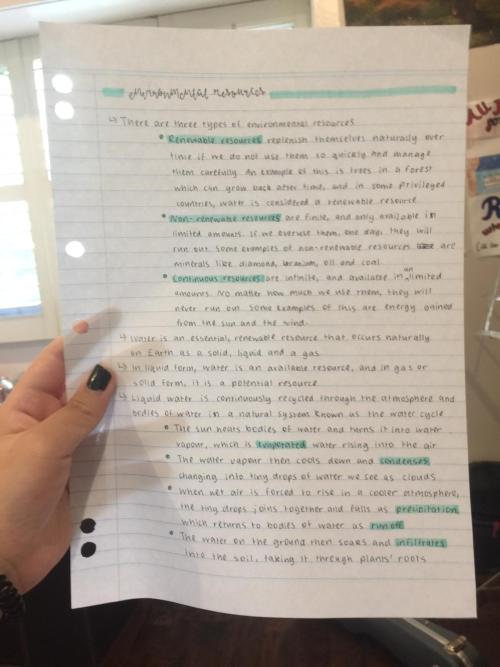 environmental resources
↳ There are three types of environmental resources
• Renewable resources replenish themselves naturally over
time if we do not use them so quickly and manage
them carefully. An example of this is trees in a forest
which can grow back after time, and in some privileged
countries, water is considered a renewable resource
• Non-renewable resources are finite, and only available in
limited amounts. If we overuse them, one day, they will
run out. Some examples of non-renewable resources are
minerals like diamond, uranium, oil and coal.
• Continuous resources are infinite, and available in unlimited
amounts. No matter how much we use them, they will
never run out. Some examples of this are energy gained
from the sun and the wind.
↳ Water is an essential, renewable resource that occurs naturally
on Earth as a solid, liquid and a gas.
↳ In liquid form, water is an available resource, and in gas or
solid form, it is a potential resource.
↳ Liquid water is continuously recycled through the atmosphere and
bodies of water in a natural system known as the water cycle
• The sun heats bodies of water and turns it into water
vapour, which is evaporated water rising into the air
• The water vapour then cools down and condenses,
changing into tiny drops of water we see as clouds
• When wet air is forced to rise in a cooler atmosphere,
the tiny drops joins together and falls as precipitation,
which returns to bodies of water as runoff
• The water on the ground then soaks and infiltrates
into the soil, taking it through plants' roots
All
R